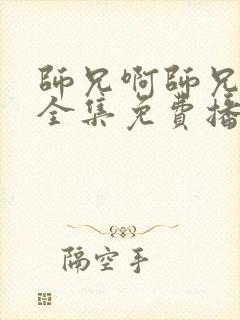 師兄啊師兄
全集免費播
隔空手